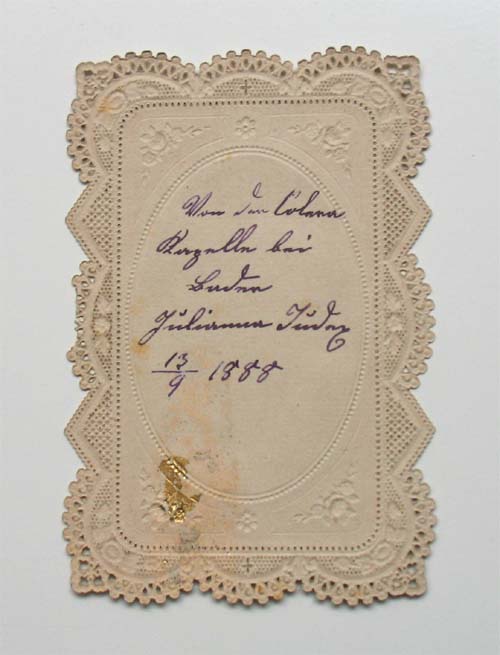 Von der Colera
Kapelle bei
Baden
Julianna Judex
13/9 1888